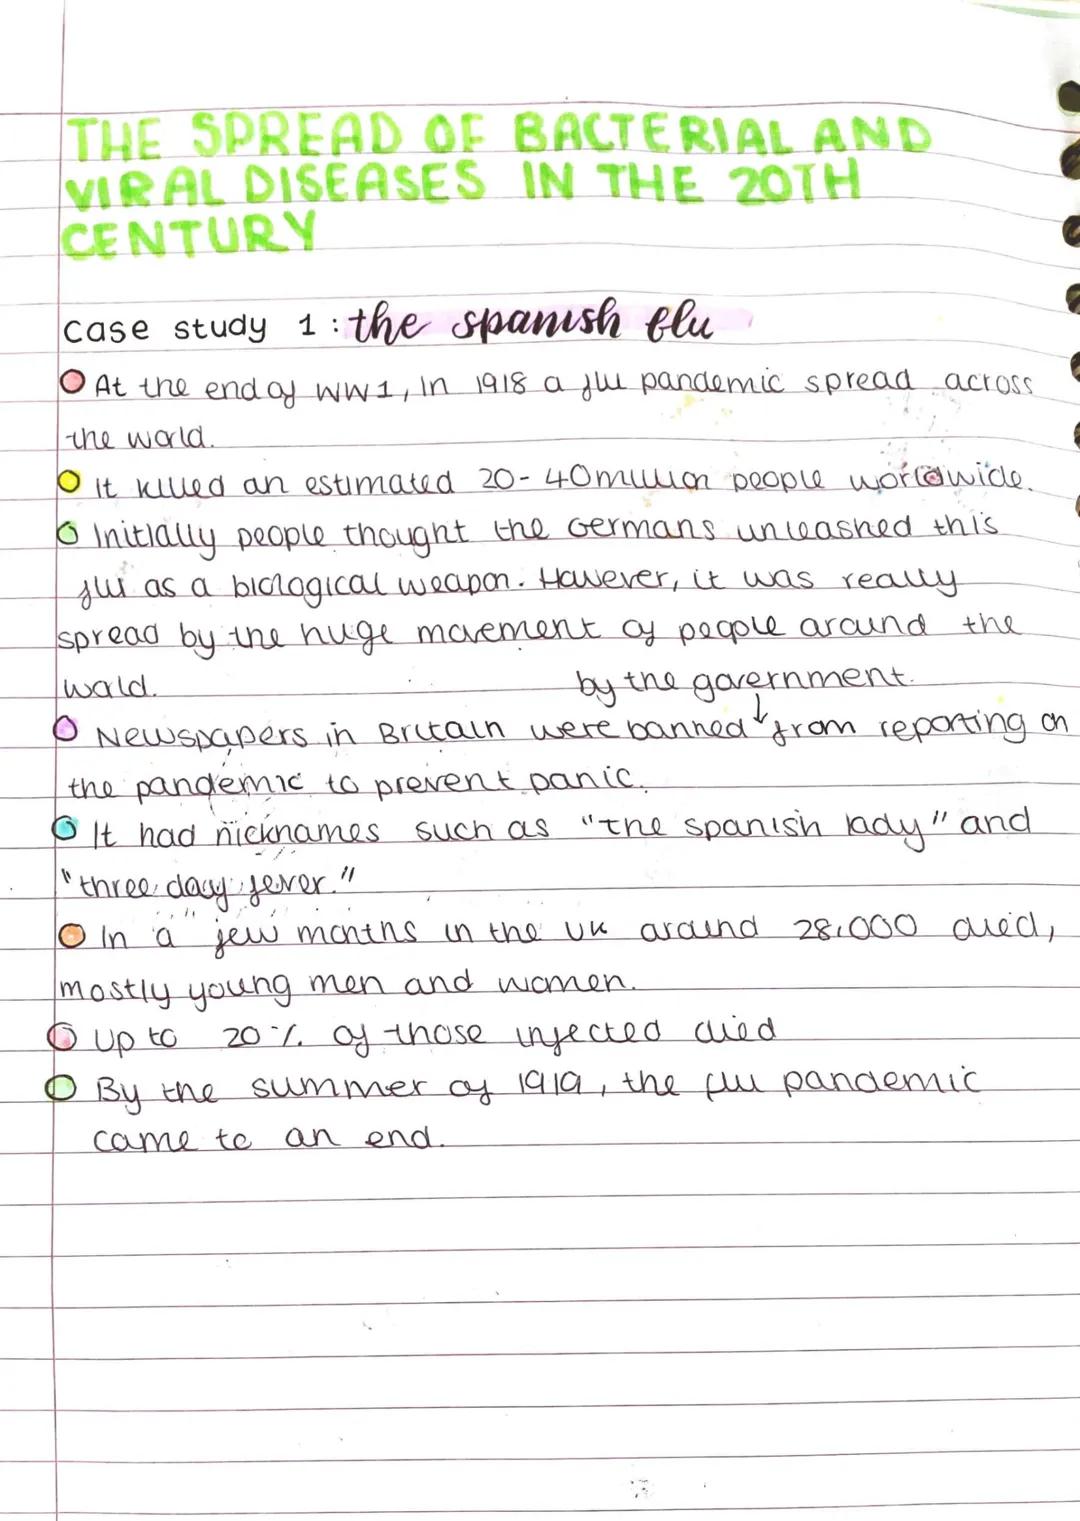 THE SPREAD OF BACTERIAL AND
VIRAL DISEASES IN THE 20TH
CENTURY
case study 1 : the spanish flu
At the end of WW1, in 1918 a flu pandemic spread across
the world.
It killed an estimated 20-40million people worldwide.
Initially people thought the Germans unleashed this
flu as a biological weapon. However, it was really
spread by the huge movement of people around the
world.
by the government.
Newspapers in Britain were banned ↓ from reporting on
the pandemic to prevent panic.
It had nicknames such as "the spanish lady" and
"three day fever."
In a few months in the UK around 28,000 died,
mostly young men and women.
Up to 20% of those infected died
By the summer of 1919, the flu pandemic
came to an end.